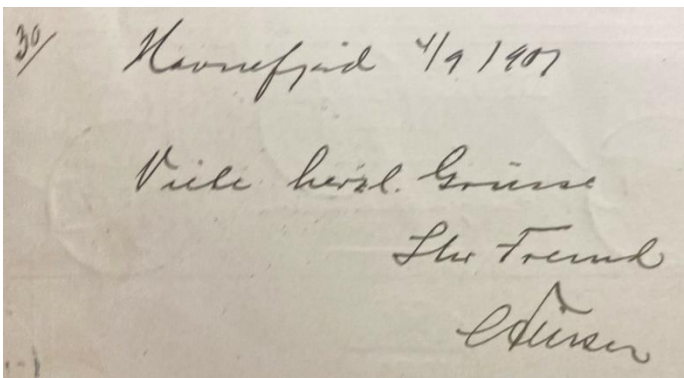 30/
Havnefjord 4/9 1901
Viele herzl. Grüsse
Ihr Freund